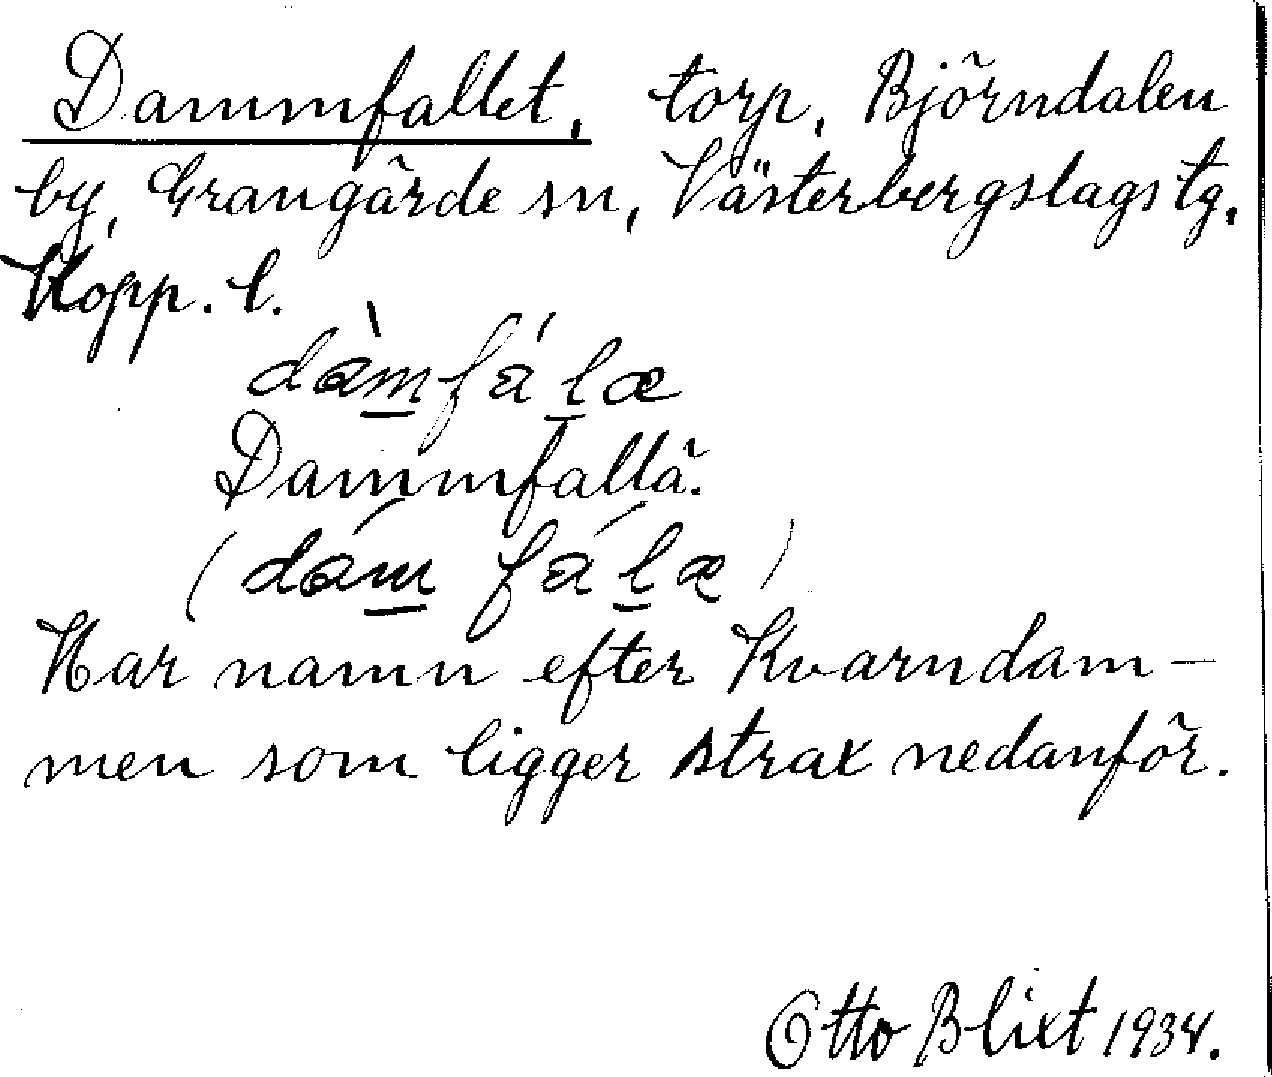 Dammfallet, torp, Björndalen
by, Grangärde sn, Västerbergslags tg.
Kopp. l.
dàmfálæ
Dammfallä.
(dám fálæ)
Har namn efter Kvarndam-
men som ligger strax nedanför.
Otto Blixt 1934.